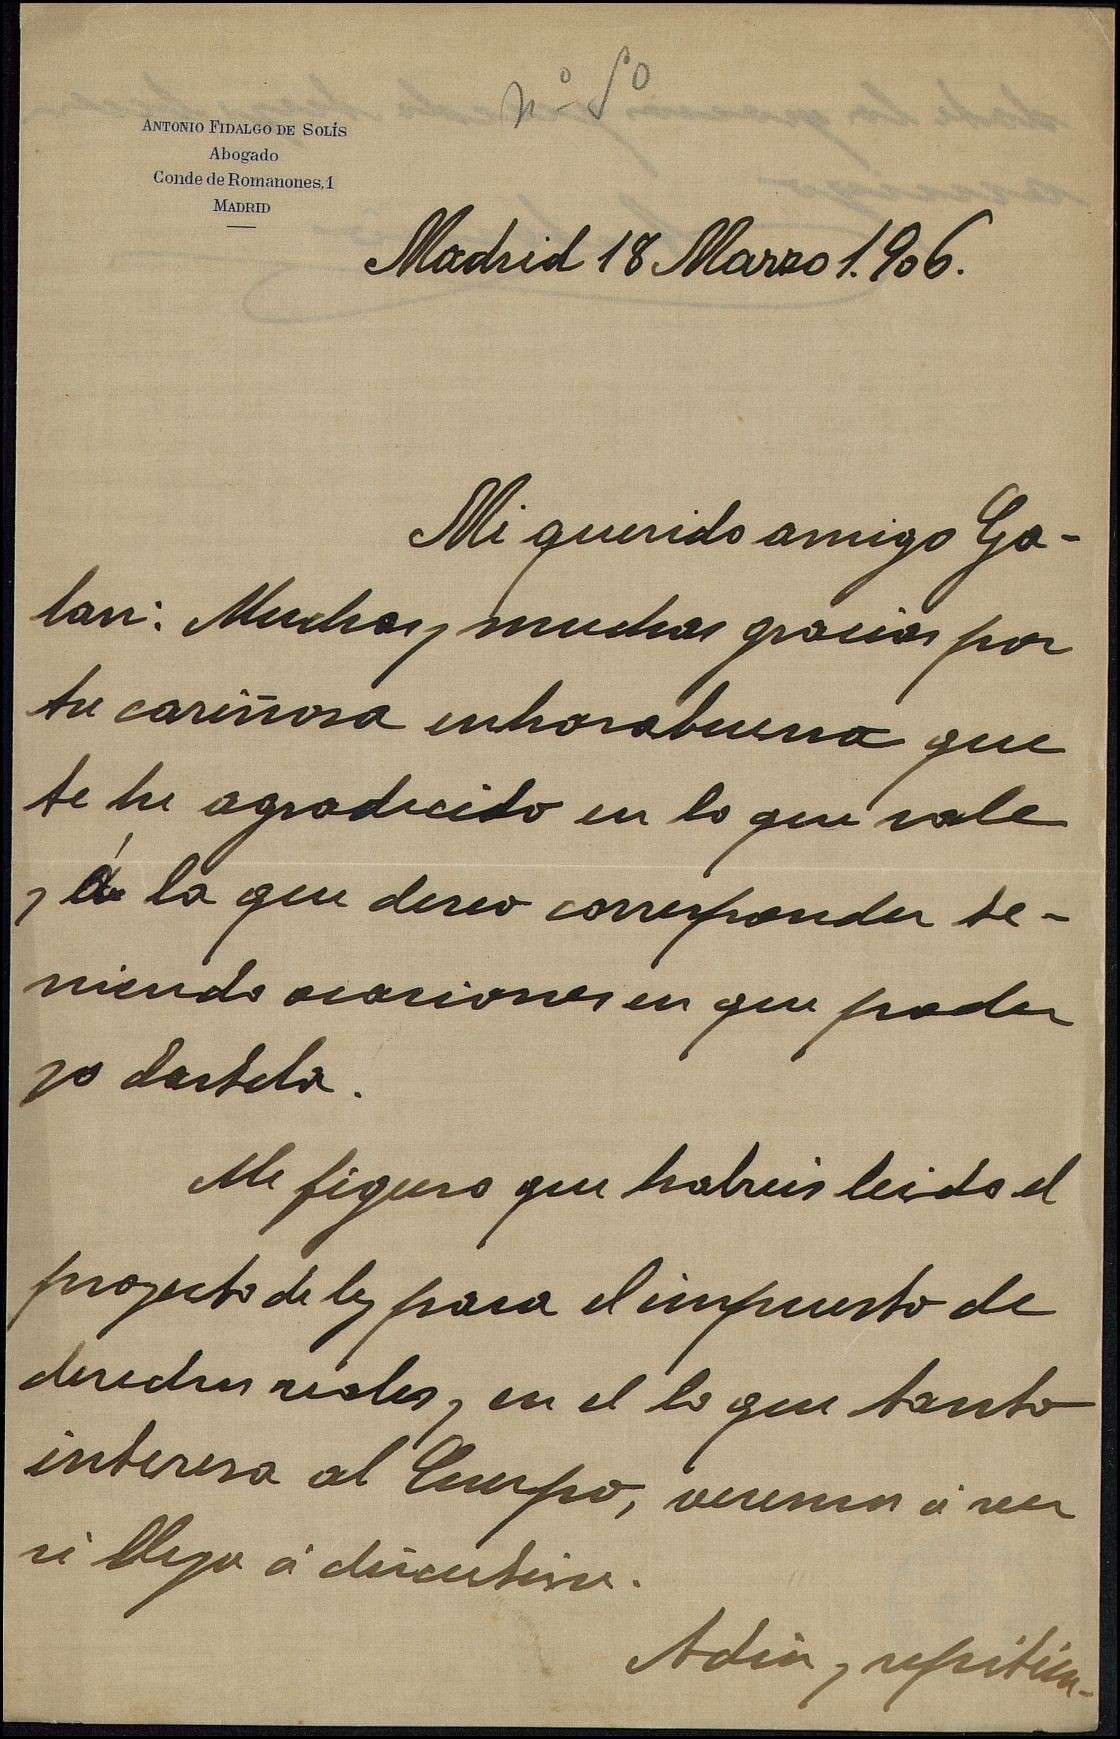 nº 50
ANTONIO FIDALGO DE SOLÍS
Abogado
Conde de Romanones, 1
MADRID
Madrid 18 Marzo 1.906.
Mi querido amigo Ga-
lan: Muchas y muchas gracias por
tu cariñosa enhorabuena que
te he agradecido en lo que vale
y á la que deseo corresponder te-
niendo ocasiones en que poder
yo dartela.
Me figuro que habreis leido el
proyecto de ley para el impuesto de
derechos reales y en el lo que tanto
interesa al Cuerpo, veremos á ver
si llega á discutirse.
Adios y repitien-